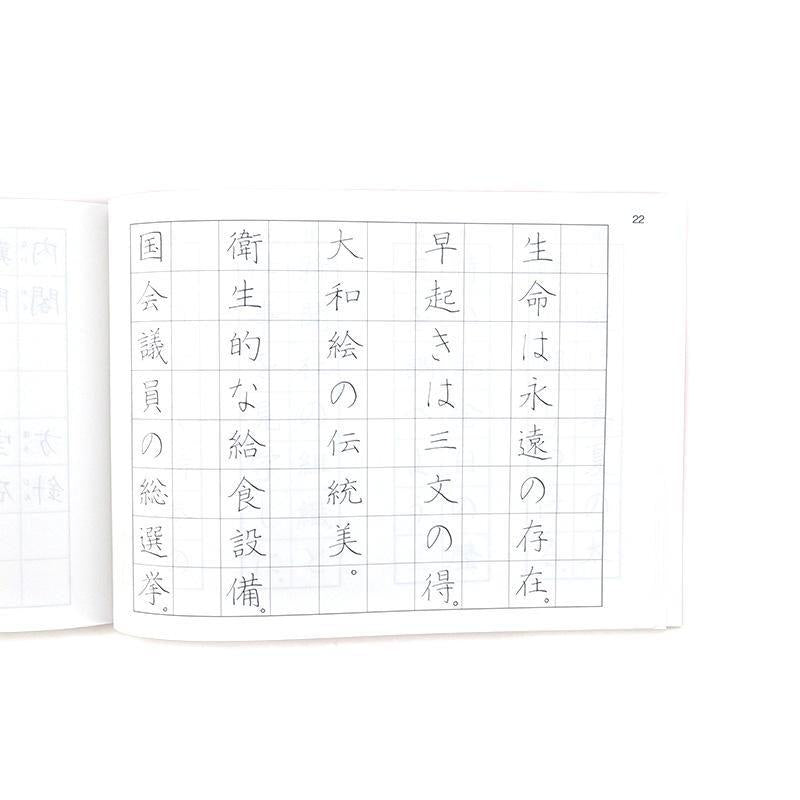 22
生命は永遠の存在。
早起きは三文の得。
大和絵の伝統美。
衛生的な給食設備。
国会議員の総選挙。